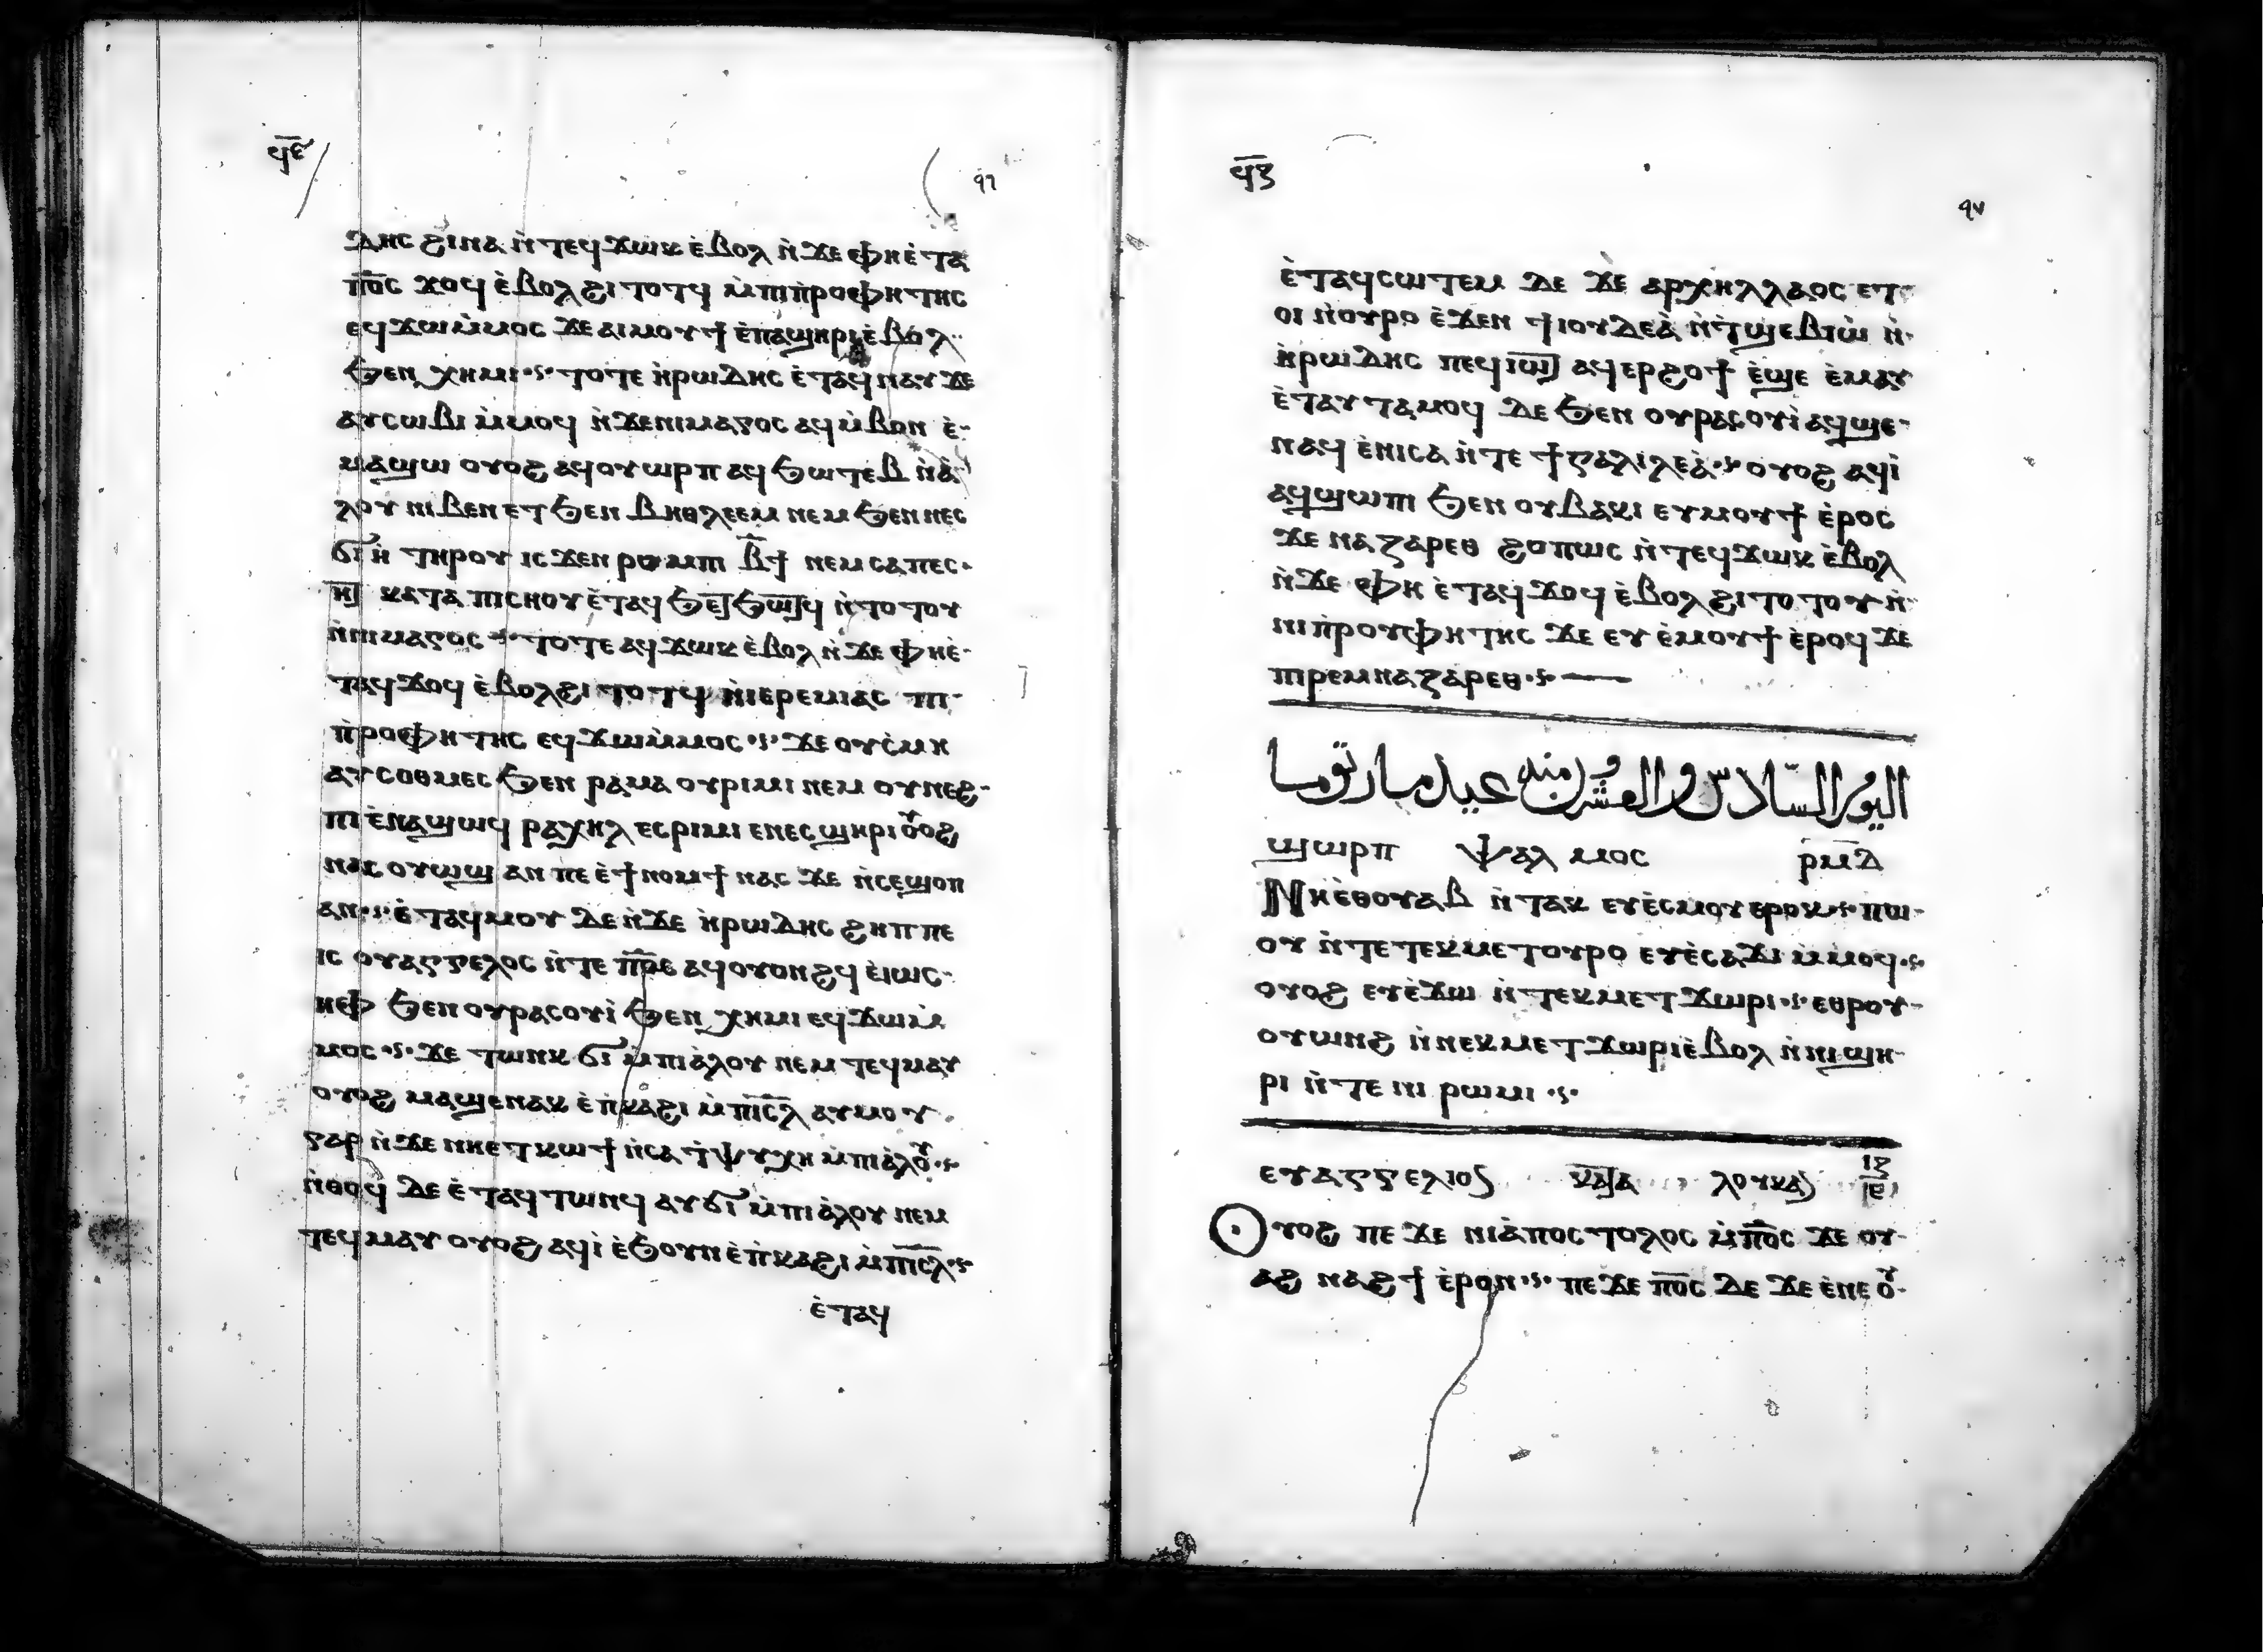 ϥⲉ̅
ⲇⲏⲥ ϩⲓⲛⲁ ⲛ̀ⲧⲉϥϫⲱⲕ ⲉ̀ⲃⲟⲗ ⲛ̀ϫⲉ ⲫⲏⲉ̀ⲧⲁ
ⲡ̅ⲟ̅ⲥ̅ ϫⲟϥ ⲉ̀ⲃⲟⲗϩⲓⲧⲟⲧϥ ⲙ̀ⲡⲓⲡ̀ⲣⲟⲫⲏⲧⲏⲥ
ⲉϥϫⲱⲙ̀ⲙⲟⲥ ϫⲉ ⲁⲓⲙⲟⲩϯ ⲉ̀ⲡⲁϣⲏⲣⲓ ⲉ̀ⲃⲟⲗ
ϧⲉⲛ ⲭⲏⲙⲓ ⲧⲟⲧⲉ ⲏ̀ⲣⲱⲇⲏⲥ ⲉ̀ⲧⲁϥⲛⲁⲩ ϫⲉ
ⲁⲩⲥⲱⲃⲓ ⲙ̀ⲙⲟϥ ⲛ̀ϫⲉⲛⲓⲙⲁⲅⲟⲥ ⲁϥⲙ̀ⲃⲟⲛ ⲉ̀
ⲙⲁϣⲱ ⲟⲩⲟϩ ⲁϥⲟⲩⲱⲣⲡ ⲁϥϧⲱⲧⲉⲃ ⲛ̀ⲁ̀
ⲗⲟⲩ ⲛⲓⲃⲉⲛ ⲉⲧϧⲉⲛ ⲃⲏⲑⲗⲉⲉⲙ ⲛⲉⲙ ϧⲉⲛ ⲛⲉⲥ
ϭⲓⲏ̀ ⲧⲏⲣⲟⲩ ⲓⲥϫⲉⲛ ⲣⲟⲙⲡⲓ ⲃ̅ϯ ⲛⲉⲙ ⲥⲁⲡⲉⲥ
ⲏⲧ ⲕⲁⲧⲁ ⲡⲓⲥⲏⲟⲩ ⲉ̀ⲧⲁϥϧⲉⲧϧⲱⲧϥ ⲛ̀ⲧⲟⲧⲟⲩ
ⲛ̀ⲛⲓⲙⲁⲅⲟⲥ ⲧⲟⲧⲉ ⲁϥϫⲱⲕ ⲉ̀ⲃⲟⲗ ⲛ̀ϫⲉ ⲫⲏⲉ̀
ⲧⲁϥϫⲟϥ ⲉ̀ⲃⲟⲗϩⲓⲧⲟⲧϥ ⲛ̀ⲓⲉⲣⲉⲙⲓⲁⲥ ⲡⲓ
ⲡ̀ⲣⲟⲫⲏⲧⲏⲥ ⲉϥϫⲱⲙ̀ⲙⲟⲥ ϫⲉ ⲟⲩⲥ̀ⲙⲏ
ⲁⲩⲥⲟⲑⲙⲉⲥ ϧⲉⲛ ⲣⲁⲙⲁ ⲟⲩⲣⲓⲙⲓ ⲛⲉⲙ ⲟⲩⲛⲉϩ
ⲡⲓ ⲉ̀ⲛⲁϣⲱϥ ⲣⲁⲭⲏⲗ ⲉⲥⲣⲓⲙⲓ ⲉⲛⲉⲥϣⲏⲣⲓ ⲟⲩⲟϩ
ⲛⲁⲥⲟⲩⲱϣ ⲁⲛ ⲡⲉ ⲉ̀ϯⲛⲟⲙϯ ⲛⲁⲥ ϫⲉ ⲛ̀ⲥⲉϣⲟⲡ
ⲁⲛ ⲉ̀ⲧⲁϥⲙⲟⲩ ⲇⲉ ⲛ̀ϫⲉ ⲏ̀ⲣⲱⲇⲏⲥ ϩⲏⲡⲡⲉ
ⲓⲥ ⲟⲩⲁⲅⲅⲉⲗⲟⲥ ⲛ̀ⲧⲉ ⲡ̅ⲟ̅ⲥ̅ ⲁϥⲟⲩⲟⲛϩϥ ⲉ̀ⲓⲱⲥ
ⲏⲫ ϧⲉⲛ ⲟⲩⲣⲁⲥⲟⲩⲓ̀ ϧⲉⲛ ⲭⲏⲙⲓ ⲉϥϫⲱⲙ̀
ⲙⲟⲥ ϫⲉ ⲧⲱⲛⲕ ϭⲓ ⲙ̀ⲡⲓⲁ̀ⲗⲟⲩ ⲛⲉⲙ ⲧⲉϥⲙⲁⲩ
ⲟⲩⲟϩ ⲙⲁϣⲉⲛⲁⲕ ⲉ̀ⲡ̀ⲕⲁϩⲓ ⲙ̀ⲡⲓ̅ⲥ̅ⲗ̅ ⲁⲩⲙⲟⲩ
ⲅⲁⲣ ⲛ̀ϫⲉ ⲛⲏⲉⲧⲕⲱϯ ⲛ̀ⲥⲁ ⲧ̀ⲯⲩⲭⲏ ⲙ̀ⲡⲓⲁ̀ⲗⲟⲩ
ⲛ̀ⲑⲟϥ ⲇⲉ ⲉ̀ⲧⲁϥⲧⲱⲛϥ ⲁⲩϭⲓ ⲙ̀ⲡⲓⲁ̀ⲗⲟⲩ ⲛⲉⲙ
ⲧⲉϥⲙⲁⲩ ⲟⲩⲟϩ ⲁϥⲓ̀ ⲉ̀ϧⲟⲩⲛ ⲉ̀ⲡ̀ⲕⲁϩⲓ ⲙ̀ⲡⲓ̅ⲥ̅ⲗ̅
ⲉ̀ⲧⲁϥ
ⲉ̀ⲧⲁϥⲥⲱⲧⲉⲙ ⲇⲉ ϫⲉ ⲁⲣⲭⲏⲗⲗⲁⲟⲥ ⲉⲧ
ⲟⲓ ⲛ̀ⲟⲩⲣⲟ ⲉ̀ϫⲉⲛ ϯⲓⲟⲩⲇⲉⲁ̀ ⲛ̀ⲧ̀ϣⲉⲃⲓⲱ̀ ⲛ̀
ⲏ̀ⲣⲱⲇⲏⲥ ⲡⲉϥⲓⲱⲧ ⲁϥⲉⲣϩⲟϯ ⲉ̀ϣⲉ ⲉ̀ⲙⲁⲩ
ⲉ̀ⲧⲁⲩⲧⲁⲙⲟϥ ⲇⲉ ϧⲉⲛ ⲟⲩⲣⲁⲥⲟⲩⲓ̀ ⲁϥϣⲉ
ⲛⲁϥ ⲉ̀ⲛⲓⲥⲁ ⲛ̀ⲧⲉ ϯⲅⲁⲗⲓⲗⲉⲁ̀ ⲟⲩⲟϩ ⲁϥⲓ̀
ⲁϥϣⲱⲡⲓ ϧⲉⲛ ⲟⲩⲃⲁⲕⲓ ⲉⲩⲙⲟⲩϯ ⲉ̀ⲣⲟⲥ
ϫⲉ ⲛⲁⲍⲁⲣⲉⲑ ϩⲟⲡⲱⲥ ⲛ̀ⲧⲉϥϫⲱⲕ ⲉ̀ⲃⲟⲗ
ⲛ̀ϫⲉ ⲫⲏ ⲉ̀ⲧⲁϥϫⲟϥ ⲉ̀ⲃⲟⲗϩⲓⲧⲟⲧⲟⲩ ⲛ̀
ⲛⲓⲡ̀ⲣⲟⲩⲫⲏⲧⲏⲥ ϫⲉ ⲉⲩⲉ̀ⲙⲟⲩϯ ⲉ̀ⲣⲟϥ ϫⲉ
ⲡⲓⲣⲉⲙⲛⲁⲍⲁⲣⲉⲑ
اليوم السّادس والعشرون منه عيد مار توما
ϣⲱⲣⲡ ⲯⲁⲗⲙⲟⲥ ⲣⲙ̅ⲇ̅
Ⲛⲏⲉⲑⲟⲩⲁⲃ ⲛ̀ⲧⲁⲕ ⲉⲩⲉ̀ⲥⲙⲟⲩ ⲉⲣⲟⲕ ⲡⲱ
ⲟⲩ ⲛ̀ⲧⲉ ⲧⲉⲕⲙⲉⲧⲟⲩⲣⲟ ⲉⲩⲉ̀ⲥⲁϫⲓ ⲙ̀ⲙⲟϥ
ⲟⲩⲟϩ ⲉⲩⲉ̀ϫⲱ ⲛ̀ⲧⲉⲕⲙⲉⲧϫⲱⲣⲓ ⲉⲑⲣⲟⲩ
ⲟⲩⲱⲛϩ ⲛ̀ⲛⲉⲕⲙⲉⲧϫⲱⲣⲓ ⲉ̀ⲃⲟⲗ ⲛ̀ⲛⲓϣⲏ
ⲣⲓ ⲛ̀ⲧⲉ ⲛⲓⲣⲱⲙⲓ
ⲉⲩⲁⲅⲅⲉⲗⲓⲟⲛ ⲕⲁⲧⲁ ⲗⲟⲩⲕⲁⲛ ⲓⲍ ⲉ̅
Ⲟⲩⲟϩ ⲡⲉϫⲉ ⲛⲓⲁ̀ⲡⲟⲥⲧⲟⲗⲟⲥ ⲙ̀ⲡ̅ⲟ̅ⲥ̅ ϫⲉ ⲟⲩ
ⲁϩ ⲛⲁϩϯ ⲉ̀ⲣⲟⲛ ⲡⲉϫⲉ ⲡ̅ⲟ̅ⲥ̅ ⲇⲉ ϫⲉ ⲉ̀ⲛⲉ ⲟⲩ